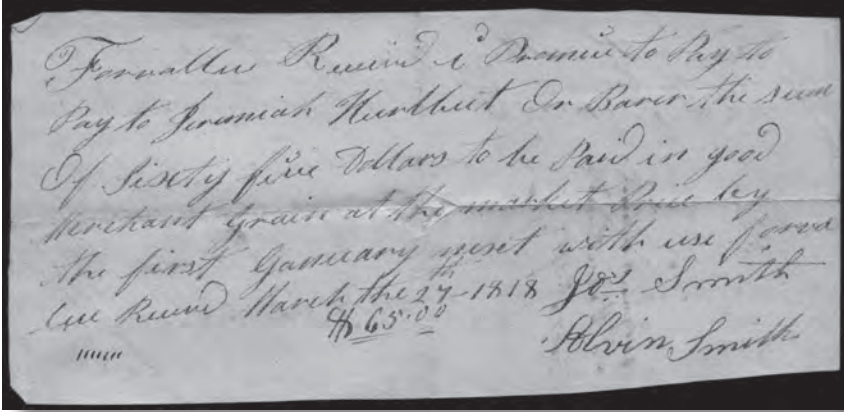 Forvallue Receivd i Promise to Pay to
Pay to Jeremiah Hurlbut Or Barer the sum
Of Sixty five Dollars to be Paid in good
Merchant Grain at the market Price by
the first Ganuary next with use forva
lue Receivd March the 27th 1818 Jos Smith
$ 65.00
Alvin Smith